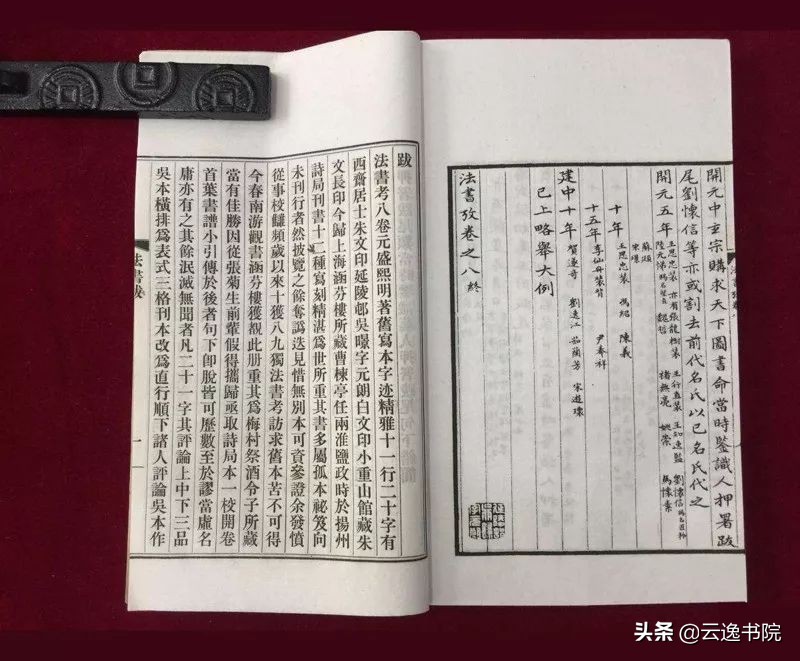 開元中玄宗購求天下圖書命當時鑒識人押署跋
尾劉懷信等亦或割去前代名氏以已名氏代之
開元五年
王思忠裝
蘇頲
宋璟
陸元悌
魏哲
褚無量
姚崇
馬懷素
十年
王思忠裝
馮紹
陳義
十五年
李仙舟裝背
尹奉祥
建中十年
賀遂奇
劉逸江
茹蘭芳
宋遊瓌
已上略舉大例
法書攷卷之八終
跋
法書考八卷元盛熙明著舊寫本字迹精雅十一行二十字有
西齋居士朱文印延陵邨吳曔字元朗白文印小重山館藏朱
文長印今歸上海涵芬樓所藏曹楝亭任兩淮鹽政時於揚州
詩局刊書十二種寫刻精湛爲世所重其書多屬孤本祕笈向
未刊行者然披覽之餘奪譌迭見惜無別本可資參證余發憤
從事校讎頻歲以來十獲八九獨法書考訪求舊本苦不可得
今春南游觀書涵芬樓獲覩此册重其爲梅村祭酒令子所藏
當有佳勝因從張菊生前輩假得攜歸亟取詩局本一校開卷
首葉書譜小引傳於後者句下卽脫皆可歷數至於謬當虛名
庸亦有之其餘泯滅無聞者凡二十一字其評論上中下三品
吳本橫排爲表式三格刊本改爲直行順下諸人評論吳本作
法書跋
一
头条 @云逸书院